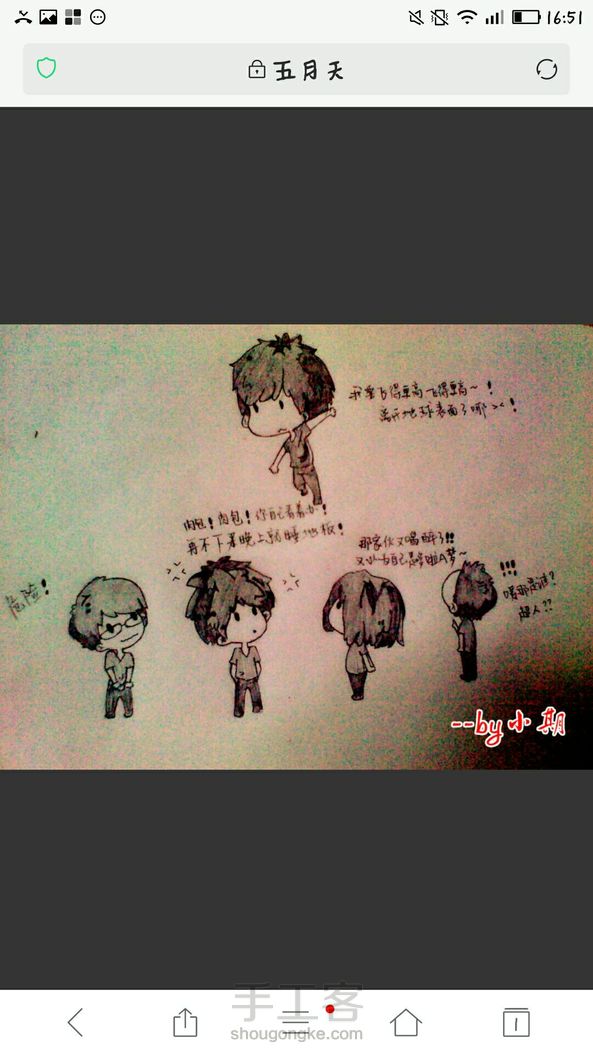 16:51
五月天
我要飞得更高飞得更高~!
离开地球表面了哪><!
肉包!肉包!你自己看着办!
再不下来晚上就睡地板!
那家伙又喝醉了!!!
又以为自己是哆啦A梦~
危险!
!!!
噢那是谁?
超人??
--by小期
手工客
shougongke.com
1